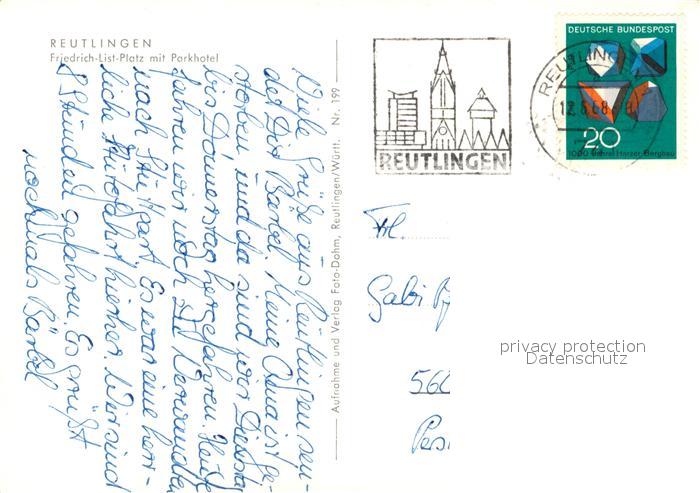 REUTLINGEN
Friedrich-List-Platz mit Parkhotel
Viele Grüße aus Reutlingen sen-
det Dir Bärbel. Meine Oma ist ge-
storben und da sind wir Dienstag
bis Donnerstag hergefahren. Heute
fahren wir noch zu Verwandten
nach Stuttgart. Es war eine herr-
liche Hinfahrt hierher. Wir sind
8 Stunden gefahren. Es grüßt
nochmals Bärbel
Aufnahme und Verlag Foto-Dohm, Reutlingen/Württ. Nr. 199
REUTLINGEN
REUTLINGEN
DEUTSCHE BUNDESPOST
20
1000 Jahre Harzer Bergbau
Frl.
Gabi
privacy protection
Datenschutz